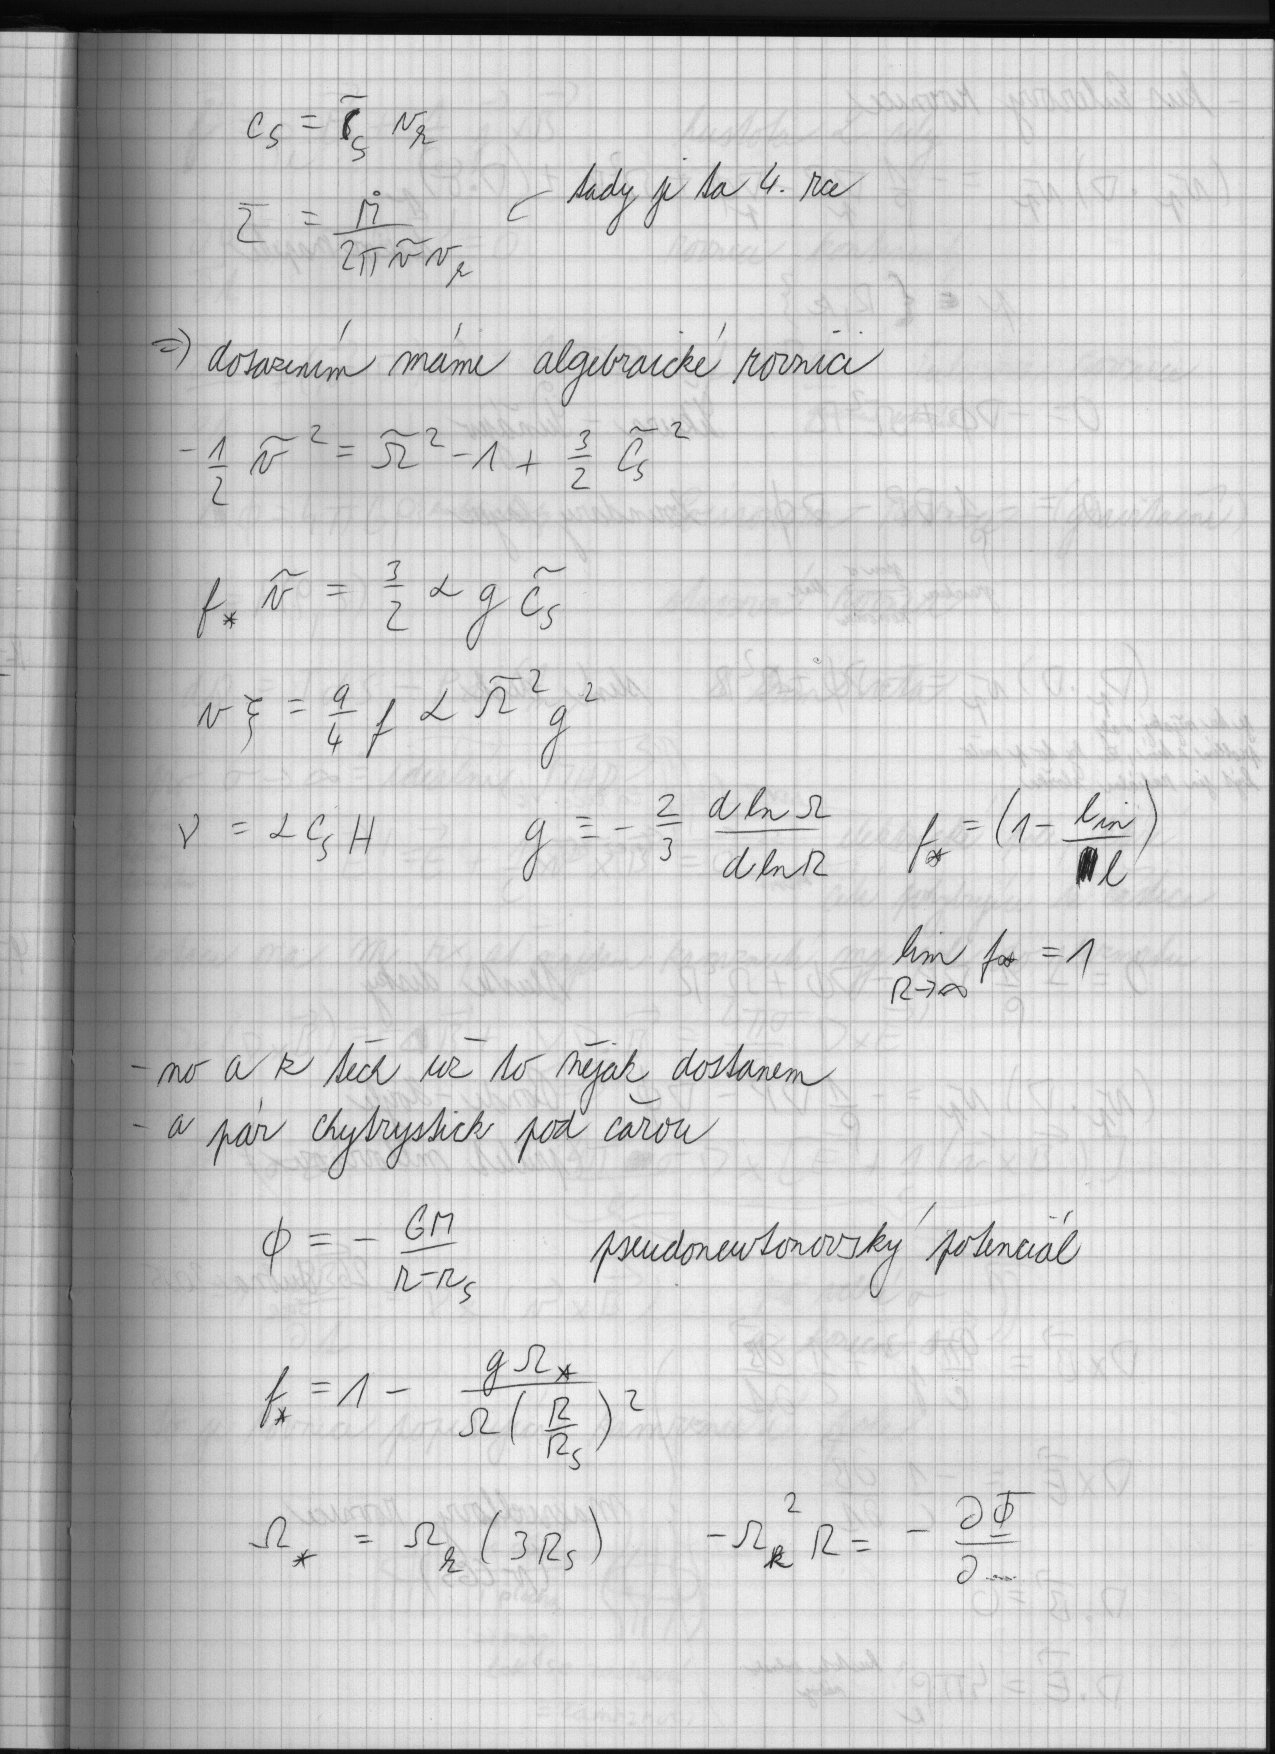 c_s = c̃_s v_k
Σ = Ṁ / 2π ṽ v_k tady je ta 4. rce
=> dosazením máme algebraické rovnice
-1/2 ṽ² = Ω̃² - 1 + 3/2 c̃_s²
f_* ṽ = 3/2 α g c̃_s
v ξ = 9/4 f α Ω̃² g²
ν = α c_s H g ≡ - 2/3 d ln Ω / d ln R f_* = (1 - l_in / l)
lim R→∞ f_* = 1
- no a k těch už to nějak dostanem
- a pár chytrystick pod čarou
ϕ = - GM / R - R_s pseudonewtonovský potenciál
f_* = 1 - g Ω_* / Ω (R / R_s)²
Ω_* = Ω_k (3R_s) - Ω_k² R = - ∂Φ / ∂...